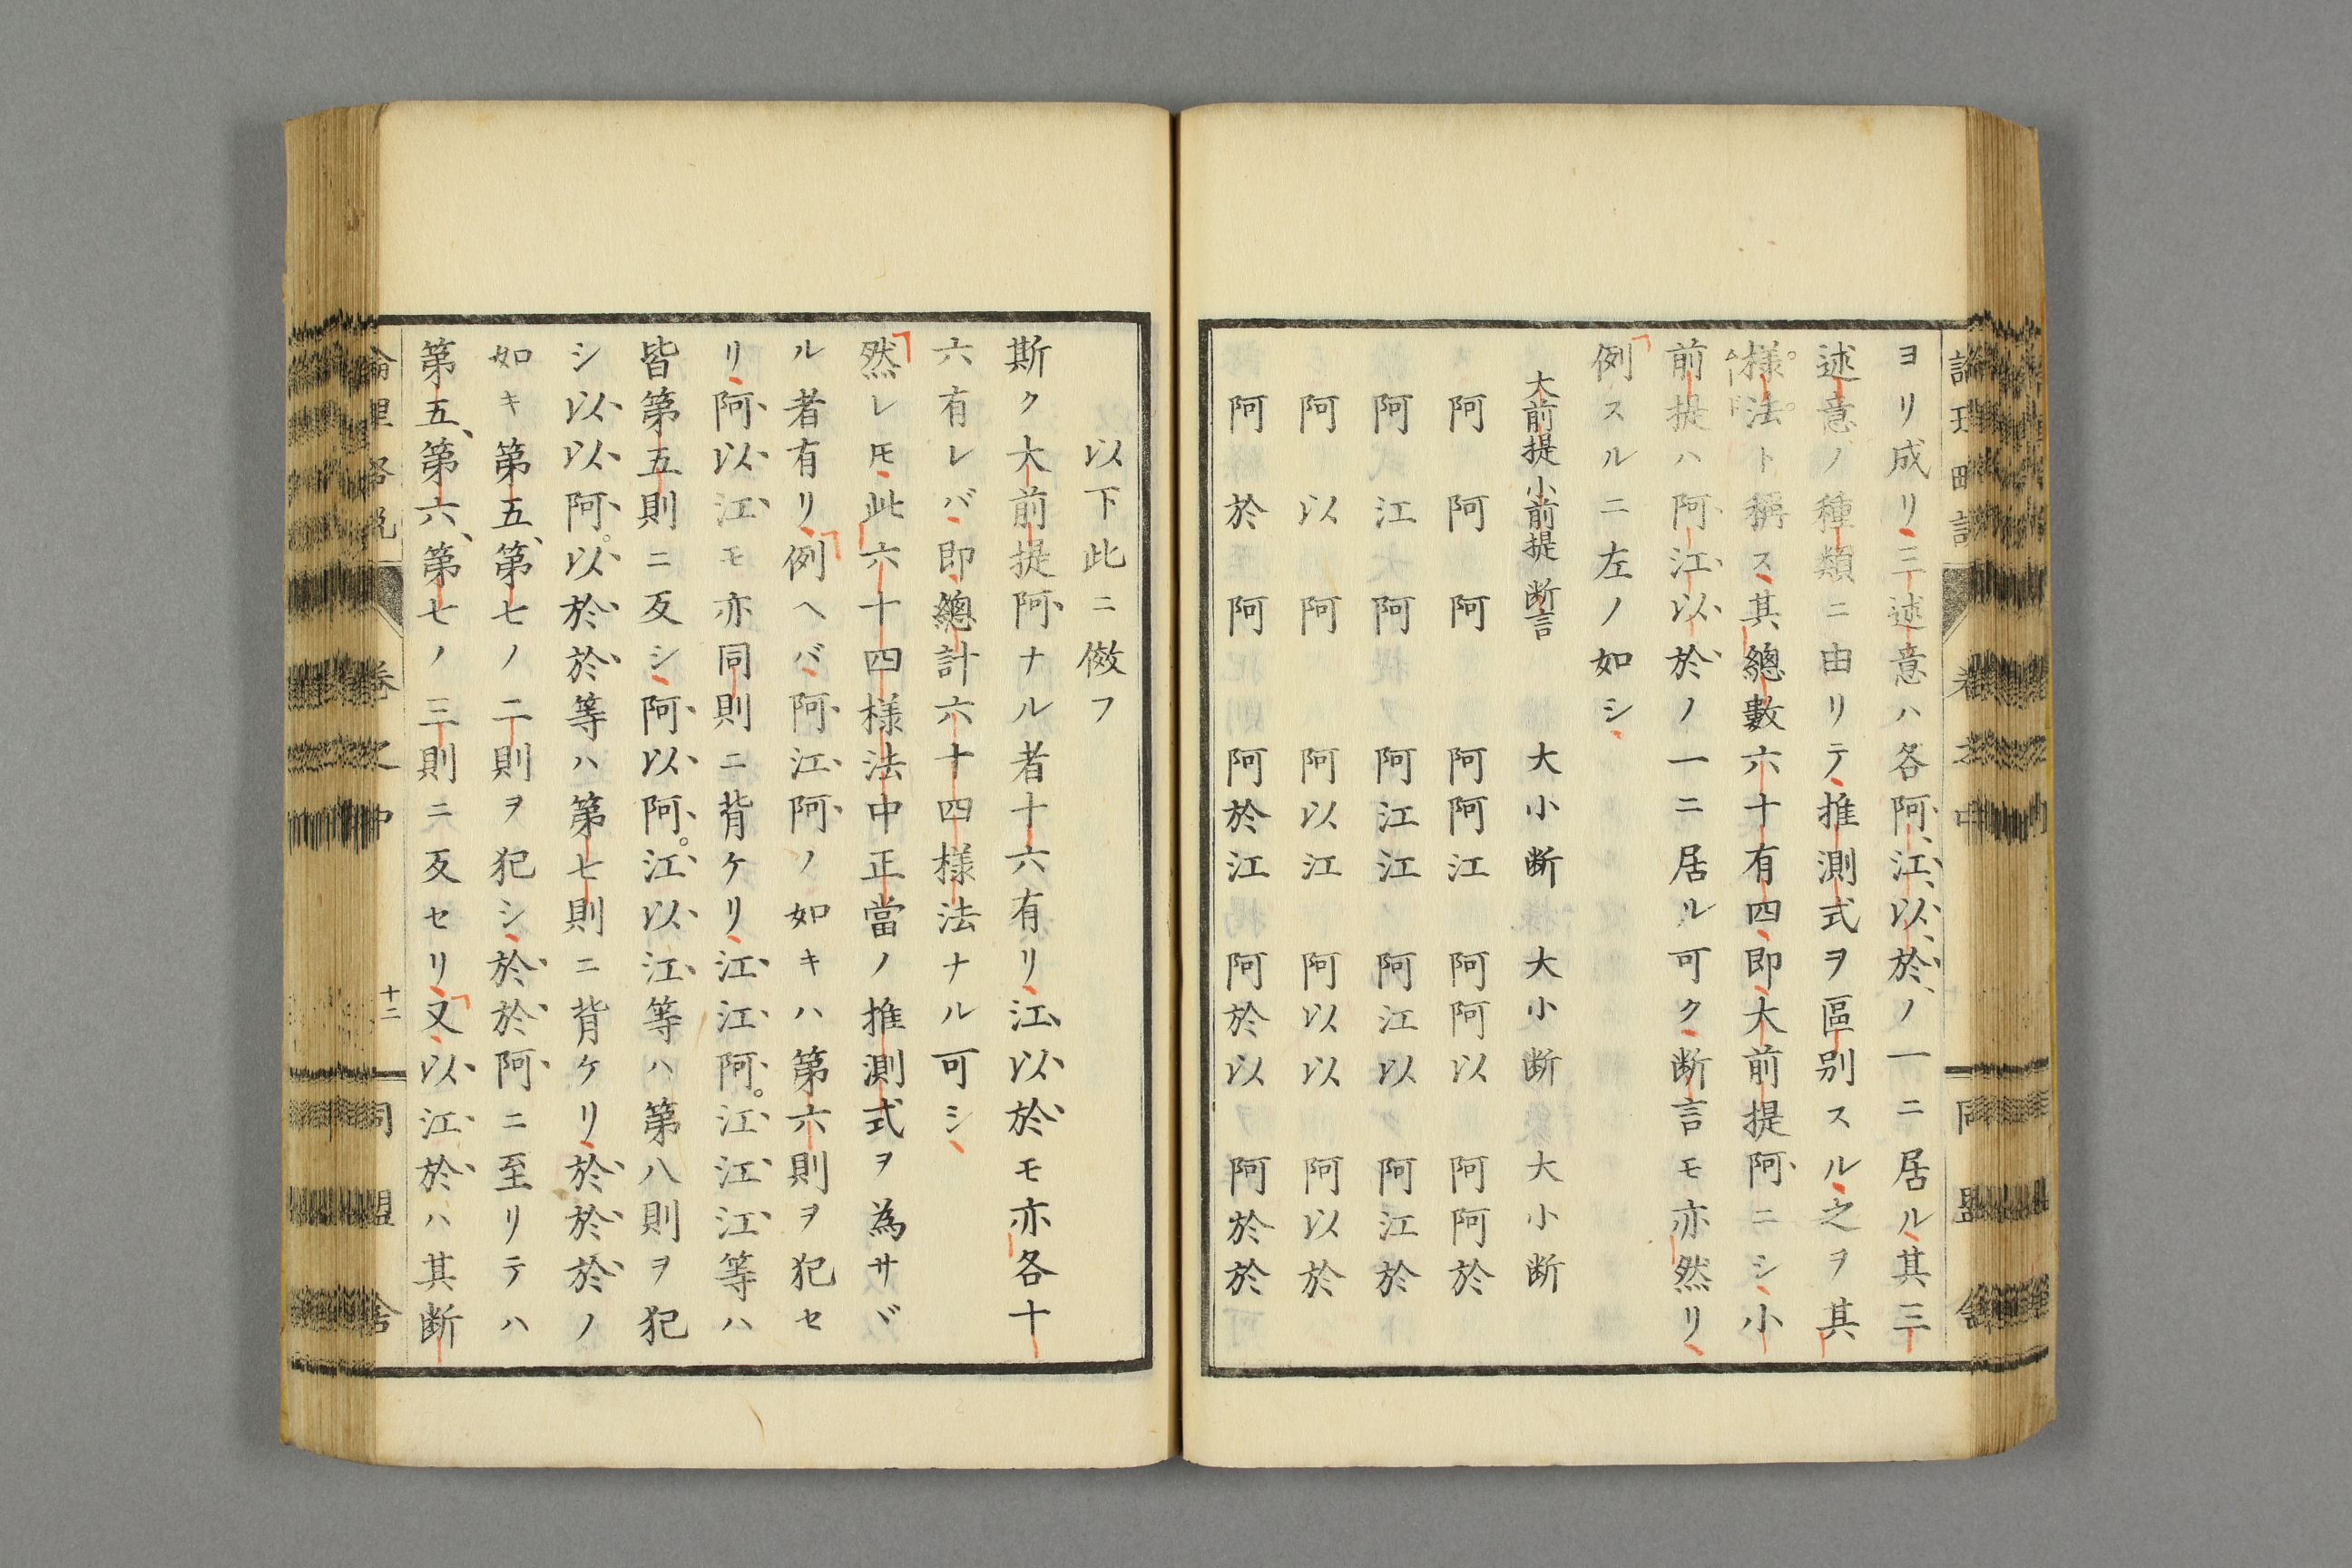 ヨリ成リ三述意ハ各阿、江、以、於、ノ一ニ居ル其三
述意ノ種類ニ由リテ推測式ヲ區别スル之ヲ其
様法ト稱ス其總數六十有四即大前提阿ニシ小
前提ハ阿江以於ノ一ニ居ル可ク断言モ亦然リ
例スルニ左ノ如シ
大前提 小前提 断言 大小断 大小断 大小断
阿 阿 阿 阿阿江 阿阿以 阿阿於
阿 江 阿 阿江江 阿江以 阿江於
阿 以 阿 阿以江 阿以以 阿以於
阿 於 阿 阿於江 阿於以 阿於於
以下此ニ傚フ
斯ク大前提阿ナル者十六有リ江以於モ亦各十
六有レバ即總計六十四様法ナル可シ
然レ𪜈此六十四様法中正當ノ推測式ヲ為サヾ
ル者有リ例ヘバ阿江阿ノ如キハ第六則ヲ犯セ
リ阿以江モ亦同則ニ背ケリ江江阿。江江江等ハ
皆第五則ニ反シ阿以阿。江以江等ハ第八則ヲ犯
シ以以阿。以於於等ハ第七則ニ背ケリ於於於ノ
如キ第五、第七ノ二則ヲ犯シ於於阿ニ至リテハ
第五、第六、第七ノ三則ニ反セリ又以江於ハ其断
卷之中
十二
同盟舎